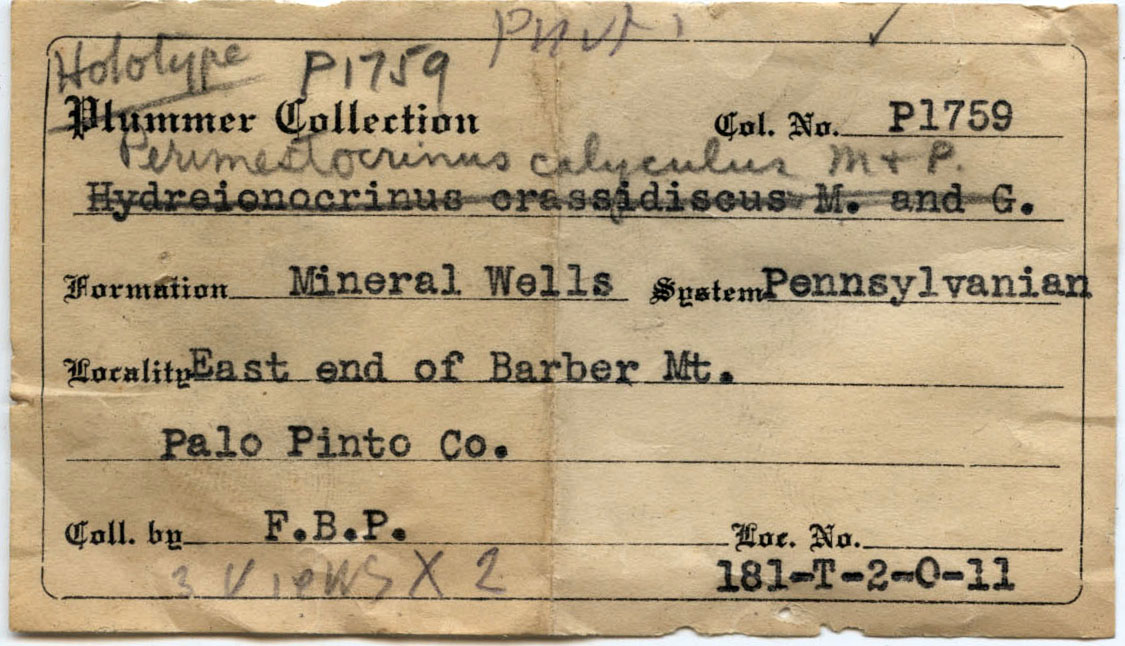 Holotype P1759
Plummer Collection Col. No. P1759
Perimestocrinus calyculus M + P.
Hydreionocrinus crassidiscus M. and G.
Formation Mineral Wells System Pennsylvanian
Locality East end of Barber Mt.
Palo Pinto Co.
Coll. by F.B.P. Loc. No.
3 Views X 2 181-T-2-O-11